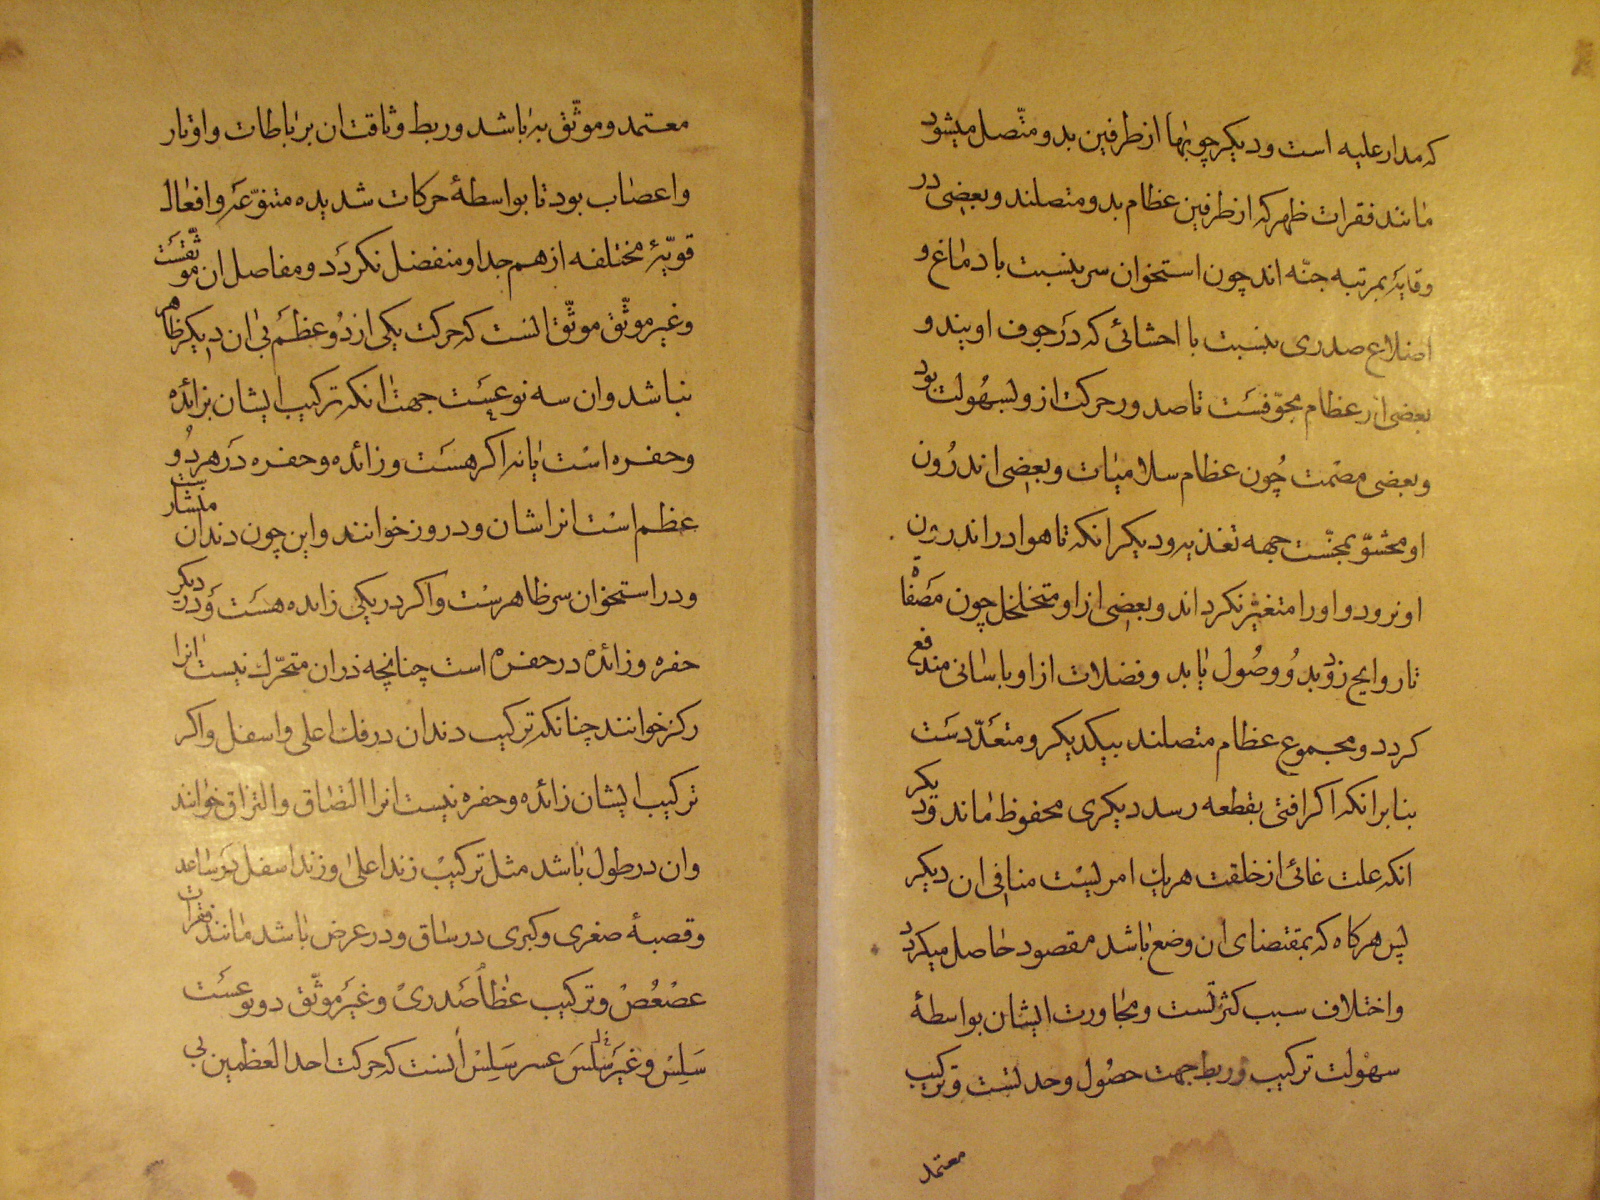 که مدار علیه است و دیکر چوبها از طرفین بدو متّصل میشود
مانند فقرات ظهر که از طرفین عظام بدو متصلند و بعضی در
وقایه بمرتبه جنّه اند چون استخوان سر بنسبت با دماغ و
اضلاع صدری بنسبت با احشائی که در جوف اویند و
بعضی از عظام مجوّفست تا صدور حرکت ازو بسهُولت بود
و بعضی مصمت چُون عظام سلامیات و بعضی اندرُون
او محشوّ بمخّست جهه تغذیه و دیکر انکه تا هوا در اندرون
او نرود و او را متغیّر نکرداند و بعضی از او متخلخل چون مصفاة
تا روایح زود بدو وصُول یابد و فضلات از او باسانی مندفع
کردد و مجموع عظام متصلند بیکدیکر و متعدّدست
بنابر انکه اکر افتی بقطعه رسد دیکری محفوظ ماند و دیکر
انکه علت غائی از خلقت هر یک امریست منافی ان دیکر
پس هرکاه که بمقتضای ان وضع باشد مقصود حاصل میکردد
و اختلاف سبب کثرتست و مجاورت ایشان بواسطهٔ
سهولت ترکیب و ربط جهت حصُول وحدتست و ترکیب
معتمد
معتمد و موثّق به باشد و ربط وثاقت ان برباطات و اوتار
و اعصاب بود تا بواسطهٔ حرکات شدیده متنوّعه و افعال
قویّهٔ مختلفه از هم جدا و منفصل نکردد و مفاصل ان موثّقست
و غیر موثّق موثّق انست که حرکت یکی از دُو عظم بی ان دیکر ظاهر
نباشد و ان سه نوعیست جهت انکه ترکیب ایشان بزائده
و حفره است یا نه اکر هست و زائده و حفره در هر دُو
عظم است انرا شان و دروز خوانند و این چون دندان منشار بیت
و در استخوان سر ظاهرست و اکر در یکی زایده هست و در دیکر
حفره و زائده در حفره است چنانچه دران متحرّک نیست انرا
رکز خوانند چنانکه ترکیب دندان در فک اعلی و اسفل و اکر
ترکیب ایشان زائده و حفره نیست انرا التصاق و التزاق خوانند
و ان در طول باشد مثل ترکیب زند اعلی و زند اسفل در ساعد
و قصبهٔ صغری و کبری در ساق و در عرض باشد مانند فقرات
عصْعُصْ و ترکیب عظام صَدریْ و غیر موثّق دو نوعست
سَلِسْ و غیر سَلِسَ عسر سَلِسْ انست که حرکت احد العظمین بی